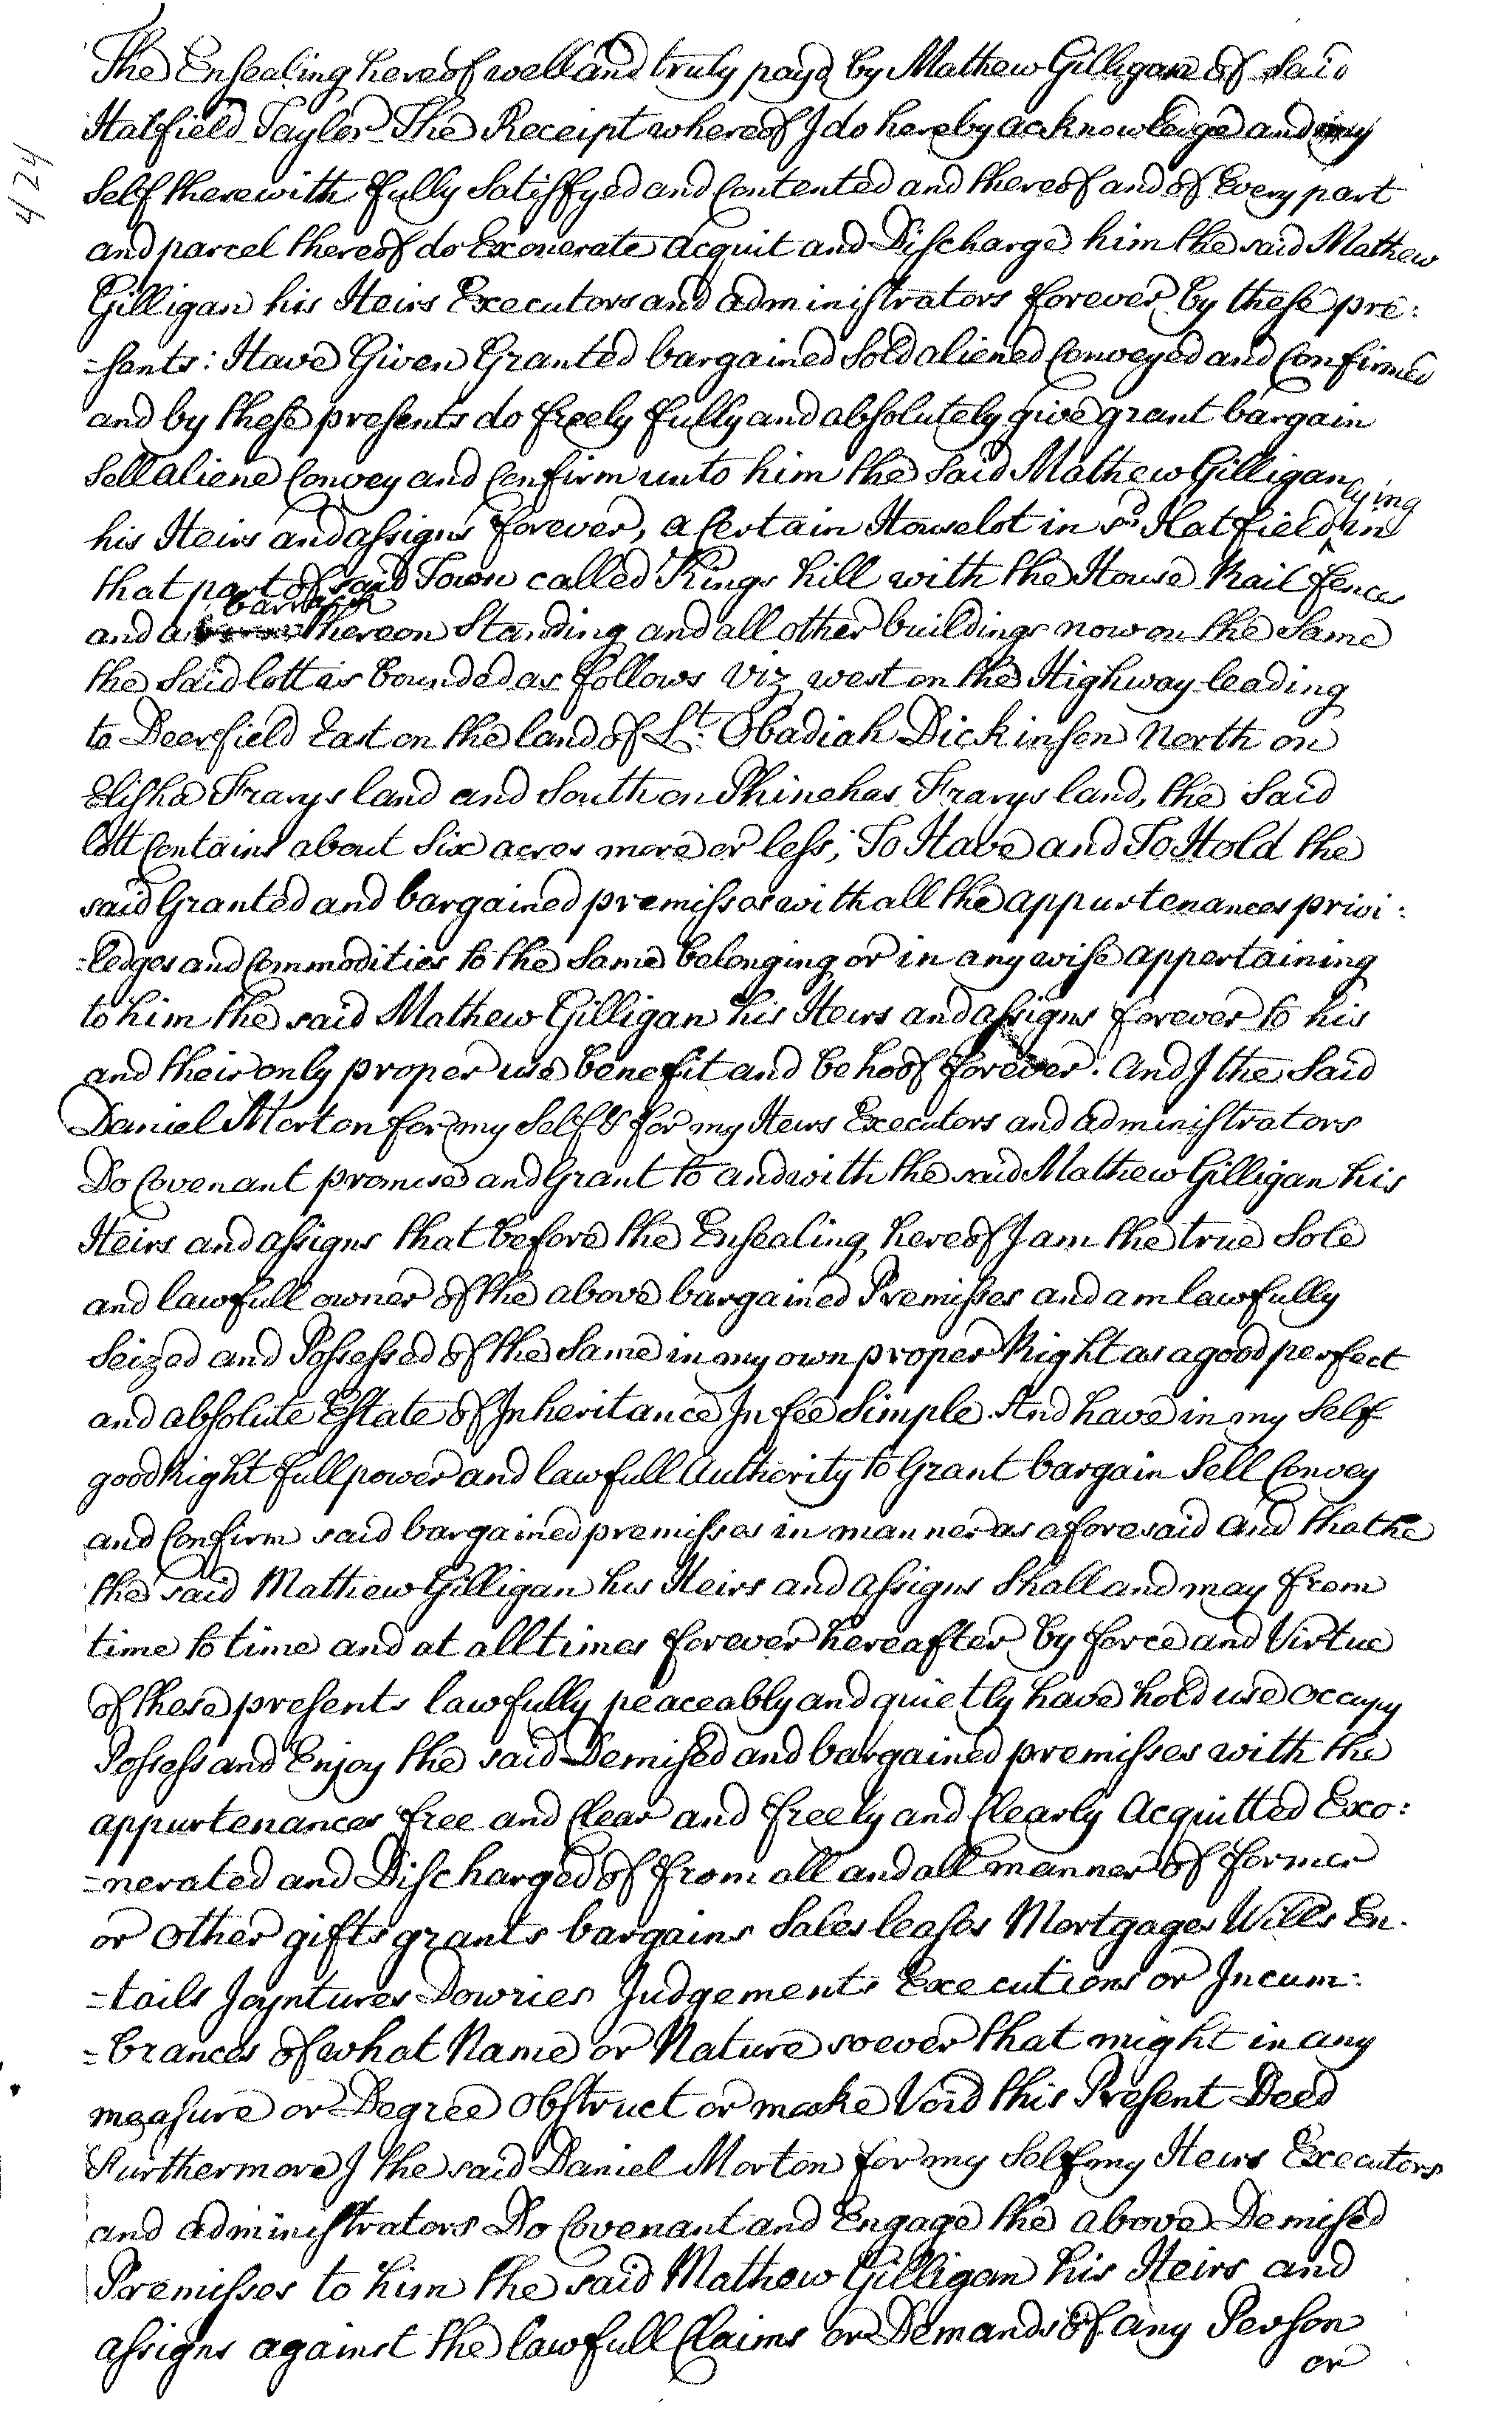 424
The Ensealing hereof well and truly payd by Mathew Gilligan of said
Hatfield Taylor The Receipt whereof I do hereby acknowledge and my
self therewith fully satisfyed and Contented and thereof and of Every part
and parcel thereof do Exonerate acquit and Discharge him the said Mathew
Gilligan his Heirs Executors and administrators forever by these pre:
=sents: Have Given Granted bargained Sold aliened Conveyed and Confirmed
and by these presents do freely fully and absolutely give grant bargain
Sell aliene Convey and Confirm unto him the said Mathew Gilligan
his Heirs and assigns forever, a Certain Houselot in sd Hatfield lying in
that part of said Town called Kings hill with the House Rail fences
and a barrack thereon Standing and all other buildings now on the Same
the said lott is bounded as follows Viz west on the Highway leading
to Deerfield East on the land of Lt. Obadiah Dickinson North on
Elisha Frarys land and South on Phinehas Frarys land, the said
lott Contains about Six acres more or less; To Have and To Hold the
said Granted and bargained premisses with all the appurtenances privi:
=ledges and Commodities to the Same belonging or in any wise appertaining
to him the said Mathew Gilligan his Heirs and assigns forever to his
and their only proper use benefit and behoof forever. And I the Said
Daniel Morton for my Self & for my Heirs Executors and administrators
Do Covenant promise and Grant to and with the said Mathew Gilligan his
Heirs and assigns that before the Ensealing hereof I am the true Sole
and lawfull owner of the above bargained Premisses and am lawfully
Seized and Possessed of the Same in my own proper Right as a good perfect
and absolute Estate of Inheritance In fee Simple And have in my Self
good Right full power and lawfull Authority to Grant bargain Sell Convey
and Confirm said bargained premisses in manner as aforesaid and that he
the said Mathew Gilligan his Heirs and assigns Shall and may from
time to time and at all times forever hereafter by force and Virtue
of these presents lawfully peaceably and quietly have hold use occupy
Possess and Enjoy the said Demised and bargained premisses with the
appurtenances free and Clear and freely and Clearly Acquitted Exo:
=nerated and Discharged of from all and all manner of former
or other gifts grants bargains Sales leases Mortgages Wills En-
=tails Joyntures Dowries Judgements Executions or Incum:
=brances of what Name or Nature soever that might in any
measure or Degree obstruct or make Void this Present Deed
Furthermore I the said Daniel Morton for my Self my Heirs Executors
and administrators Do Covenant and Engage the above Demised
Premisses to him the said Mathew Gilligan his Heirs and
assigns against the lawfull Claims or Demands of any Person
or